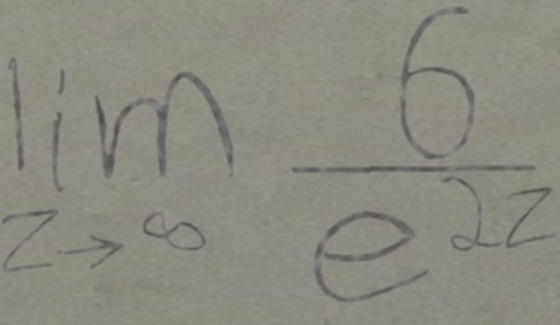 \lim_{z \to \infty} \frac{6}{e^{2z}}